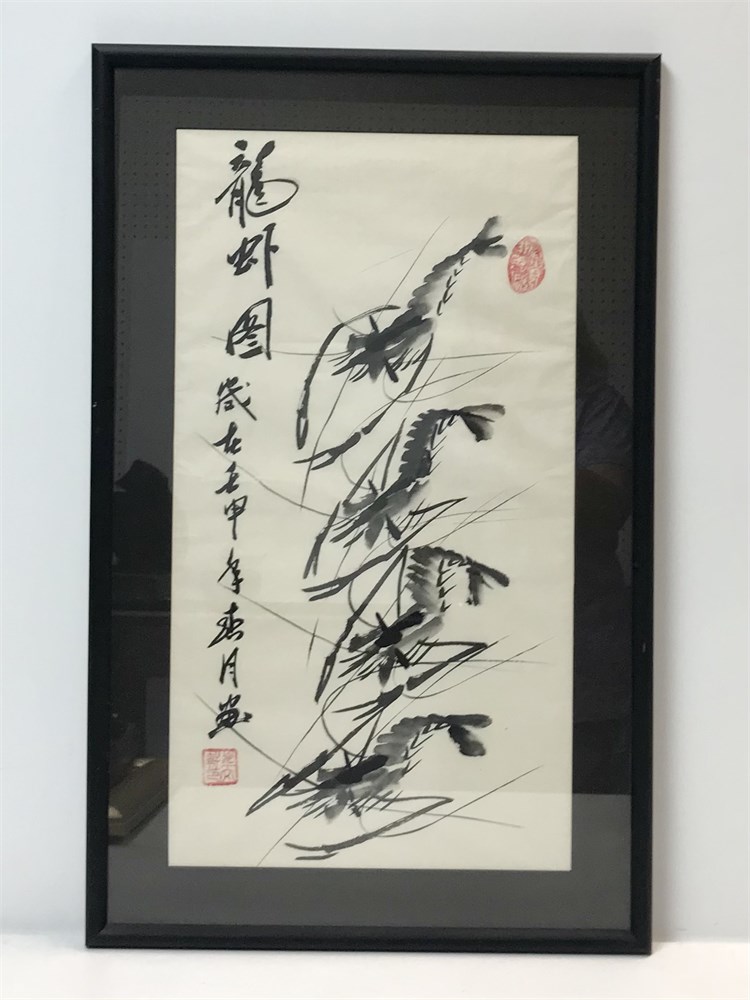 龍虾图 歲在壬申年春月画